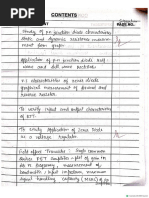 CONTENTS
PAGE NO.
Study of p.n junction diode characteristics
static and dynamic resistance measurement
from graph
application of p.n junction diode half
wave and full wave rectifier
v.i characteristics of zener diode
graphical measurement of forward and
reverse resistor
To verify input and output characteristics
of BJT.
To verify application of Zener Diode
as a voltage regulator
Field effect Transistor Single Common
Source FET amplifier plot of gain in
dB Vs frequency measurement of
bandwidth input impedance maximum
signal handling capacity (